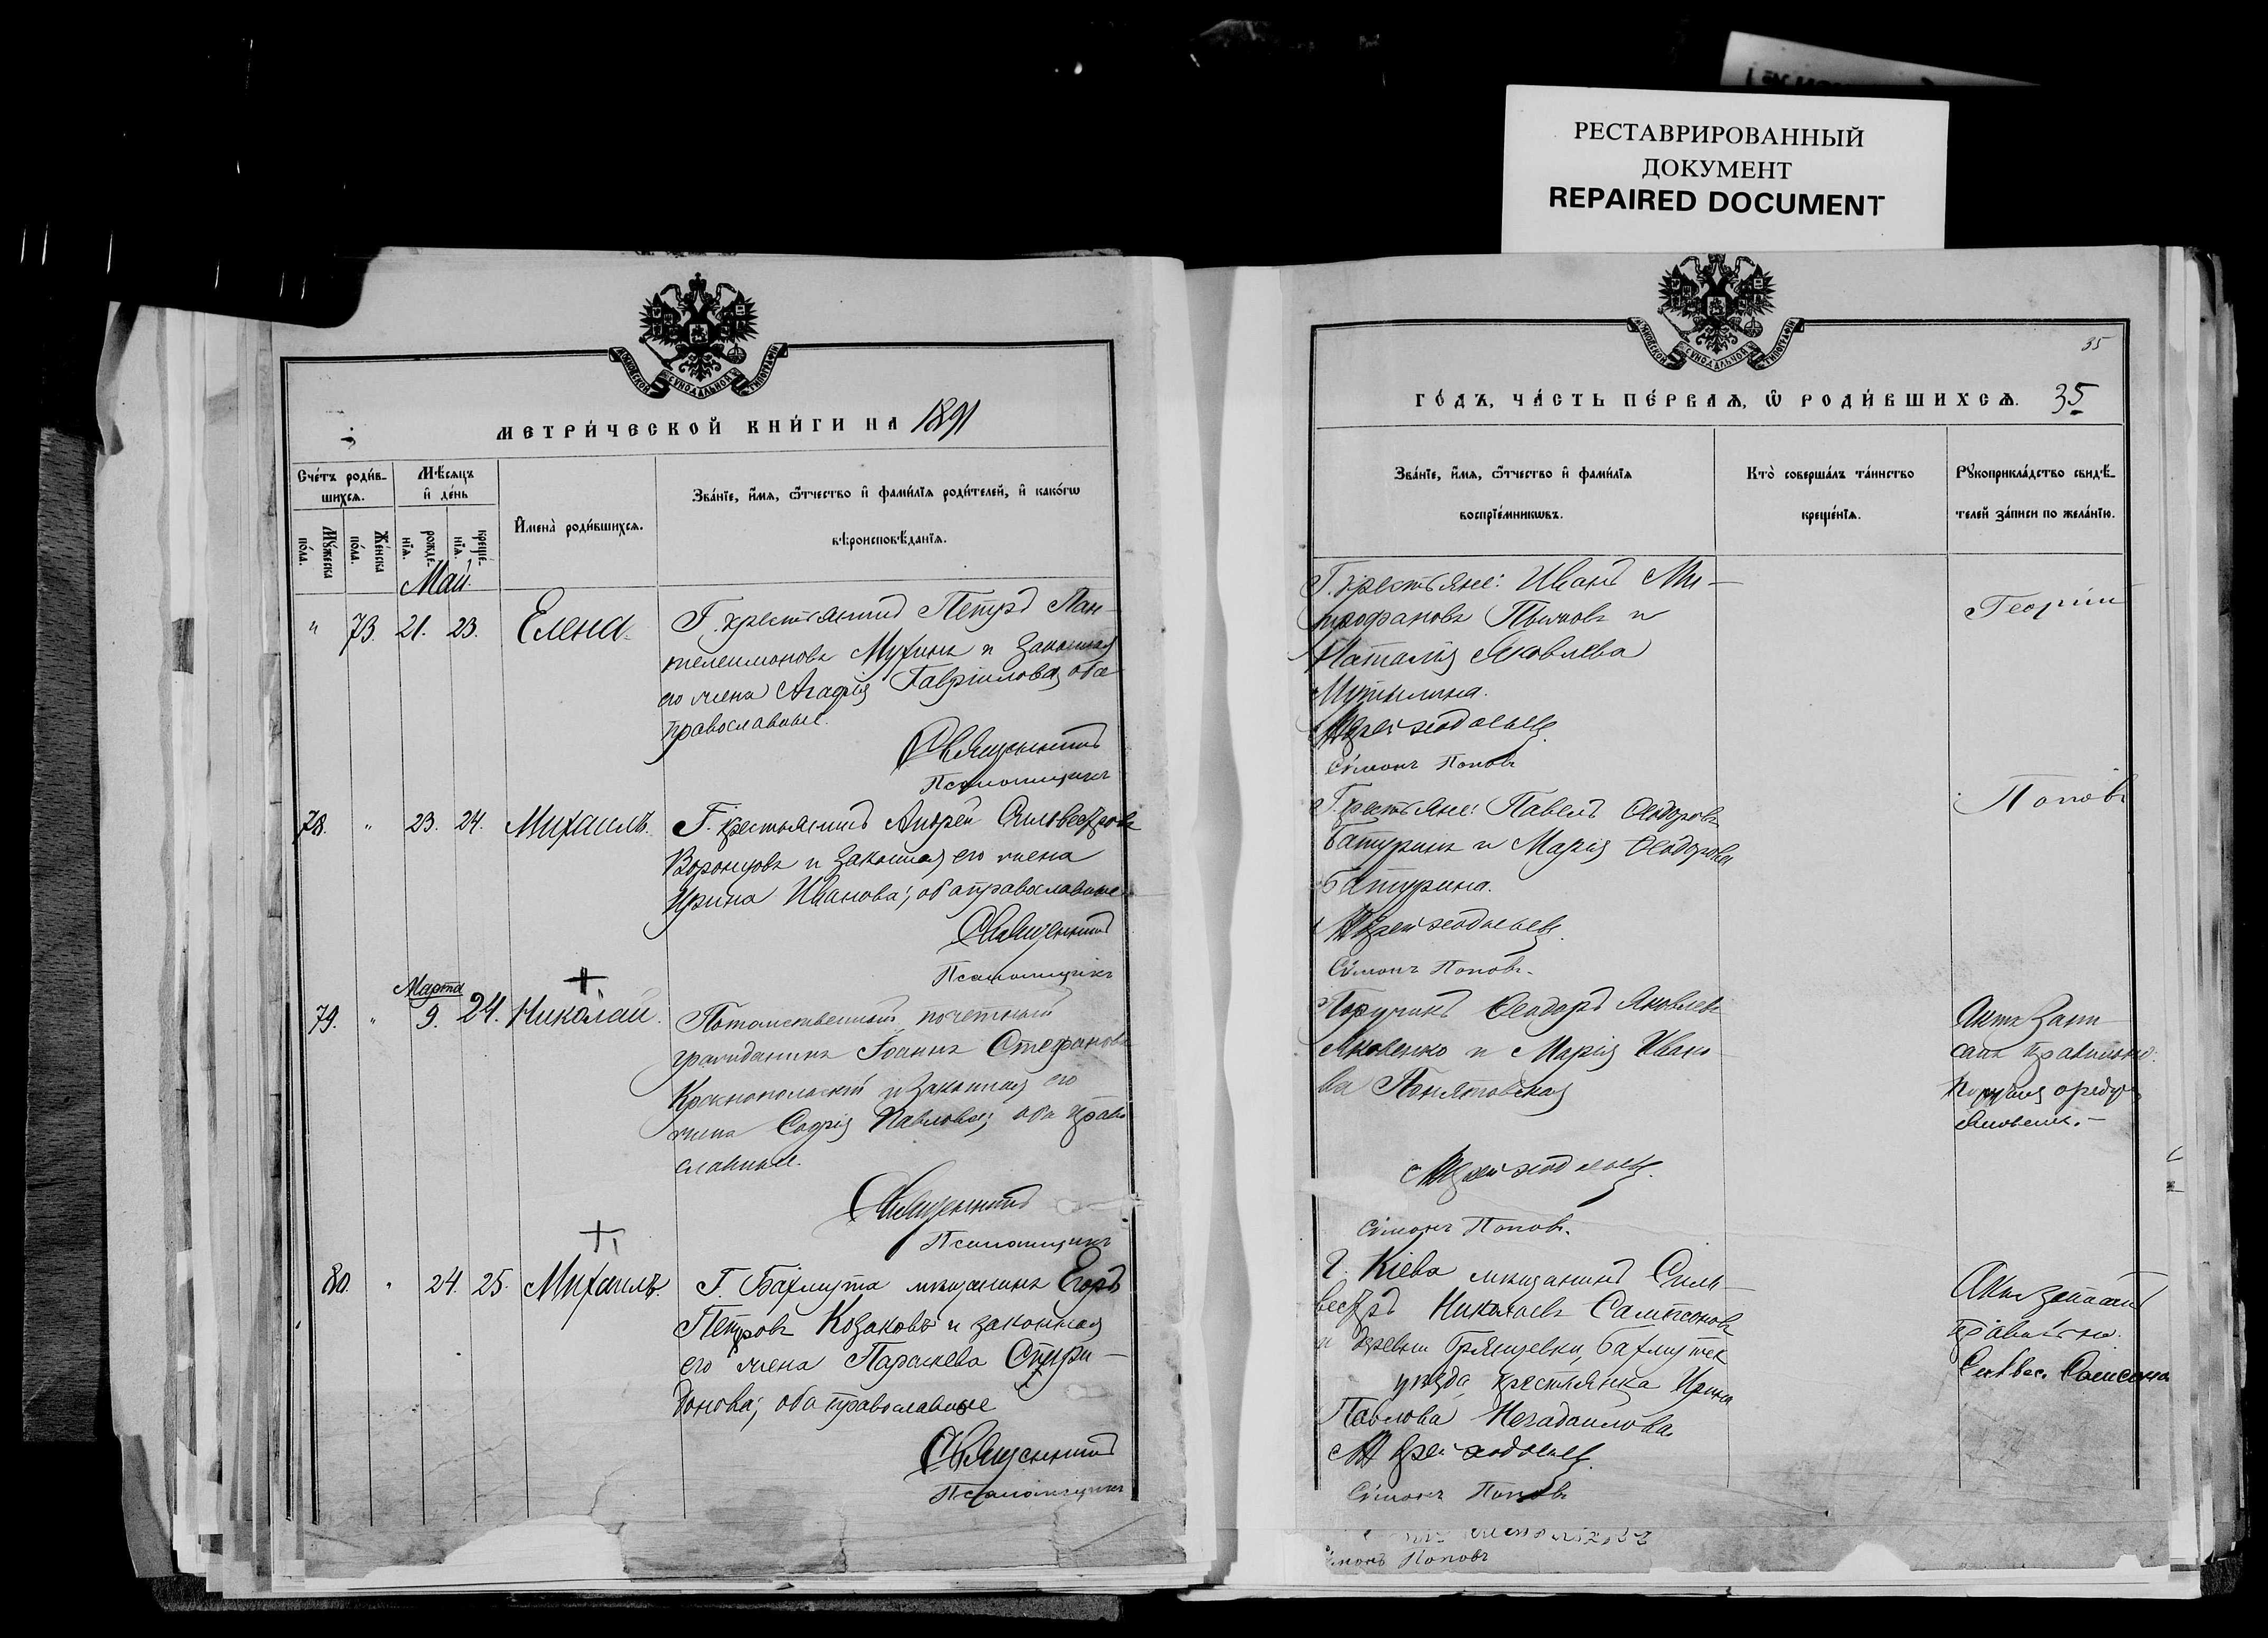 РЕСТАВРИРОВАННЫЙ
ДОКУМЕНТ
REPAIRED DOCUMENT
МОСКОВСКОЙ СУНОДАЛЬНОЙ ТИПОГРАФІИ
МЕТРИ́ЧЕСКОЙ КНИ́ГИ НА 1891
Сче́тъ роди́в-
шихсѧ.
Мѣ́сѧцъ
и҆ де́нь
Мꙋ́жеска
по́ла.
Же́нска
по́ла.
рожде́-
нїѧ.
креще́-
нїѧ.
И҆мена̀ роди́вшихсѧ.
Зва́нїе, и҆́мѧ, ѻ҆́тчество и҆ фами́лїѧ роди́телей, и҆ како́гѡ
вѣроисповѣ́данїѧ.
Май.
" 73. 21. 23. Елена.
Г. крестьянинъ Петръ Пан-
телеимоновъ Мухинъ и законная
его жена Агафія Гавріилова, оба
православные.
Священникъ
Псаломщикъ
78. " 23. 24. Михаилъ.
Г. крестьянинъ Андрей Сильвестровъ
Воронцовъ и законная его жена
Ирина Иванова; оба православные.
Священникъ
Псаломщикъ
Марта
79. " 9. 24. Николай.
Потомственный почетный
гражданинъ Іоаннъ Стефановъ
Краснопольскій и законная его
жена Софія Павлова; оба право
славные.
Священникъ
Псаломщикъ
80. " 24. 25. Михаилъ.
Г. Бахмута мѣщанинъ Егоръ
Петровъ Козаковъ и законная
его жена Параскева Спири-
донова; оба православные
Священникъ
Псаломщикъ
35
МОСКОВСКОЙ СУНОДАЛЬНОЙ ТИПОГРАФІИ
ГО́ДЪ, ЧА́СТЬ ПЕ́РВАѦ, Ѡ҆ РОДИ́ВШИХСѦ. 35
Зва́нїе, и҆́мѧ, ѻ҆́тчество и҆ фами́лїѧ
воспрїе́мникѡвъ.
Кто̀ соверша́лъ та́инство
креще́нїѧ.
Рꙋкоприкла́дство свидѣ́-
телей за́писи по жела́нїю.
Г. крестьяне: Иванъ Ми-
трофановъ и
Наталія Яковлева
Симонъ Поповъ
Георгій
Г. крестьяне: Павелъ Ѳеодоровъ
Батуринъ и Марія Ѳеодорова
Батурина.
Симонъ Поповъ.
Поповъ
Поручикъ Ѳеодоръ Яковлевъ
Яковенко и Марія Ивано
ва Понятовская
Симонъ Поповъ.
Актъ запи
санъ правильно.
Яковенко.
Г. Кіева мѣщанинъ Силь-
вестръ Николаевъ Сампсоновъ
и деревни Грянцевки, Бахмутск
уѣзда, крестьянка Ирина
Павлова Негадаилова
Симонъ Поповъ
Актъ записанъ
правильно.
Сильвес. Сампсоновъ
Симонъ Поповъ